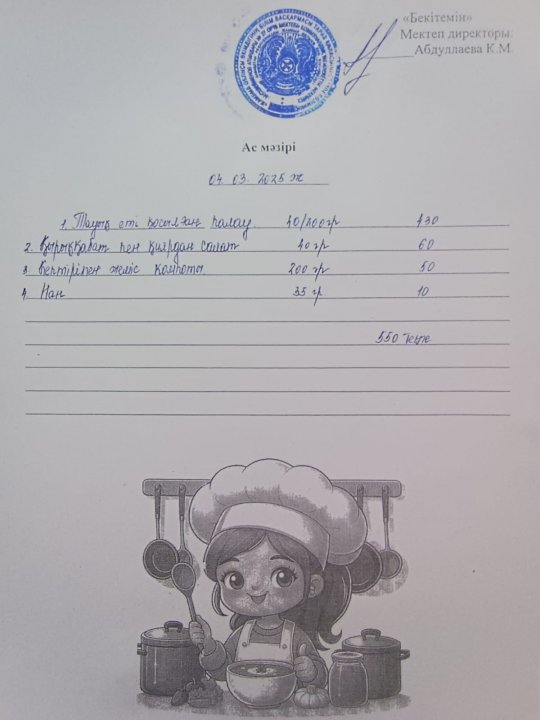 «Бекітемін»
Мектеп директоры:
Абдуллаева К.М.
Ас мәзірі
04. 03. 2025 ж
1. Тауық еті қосылған палау 40/200гр 430
2. Қырыққабат пен қиярдан салат 40 гр 60
3 Кептірілген жеміс компоты 200 гр 50
4. Нан 35 гр 10
550 теңге